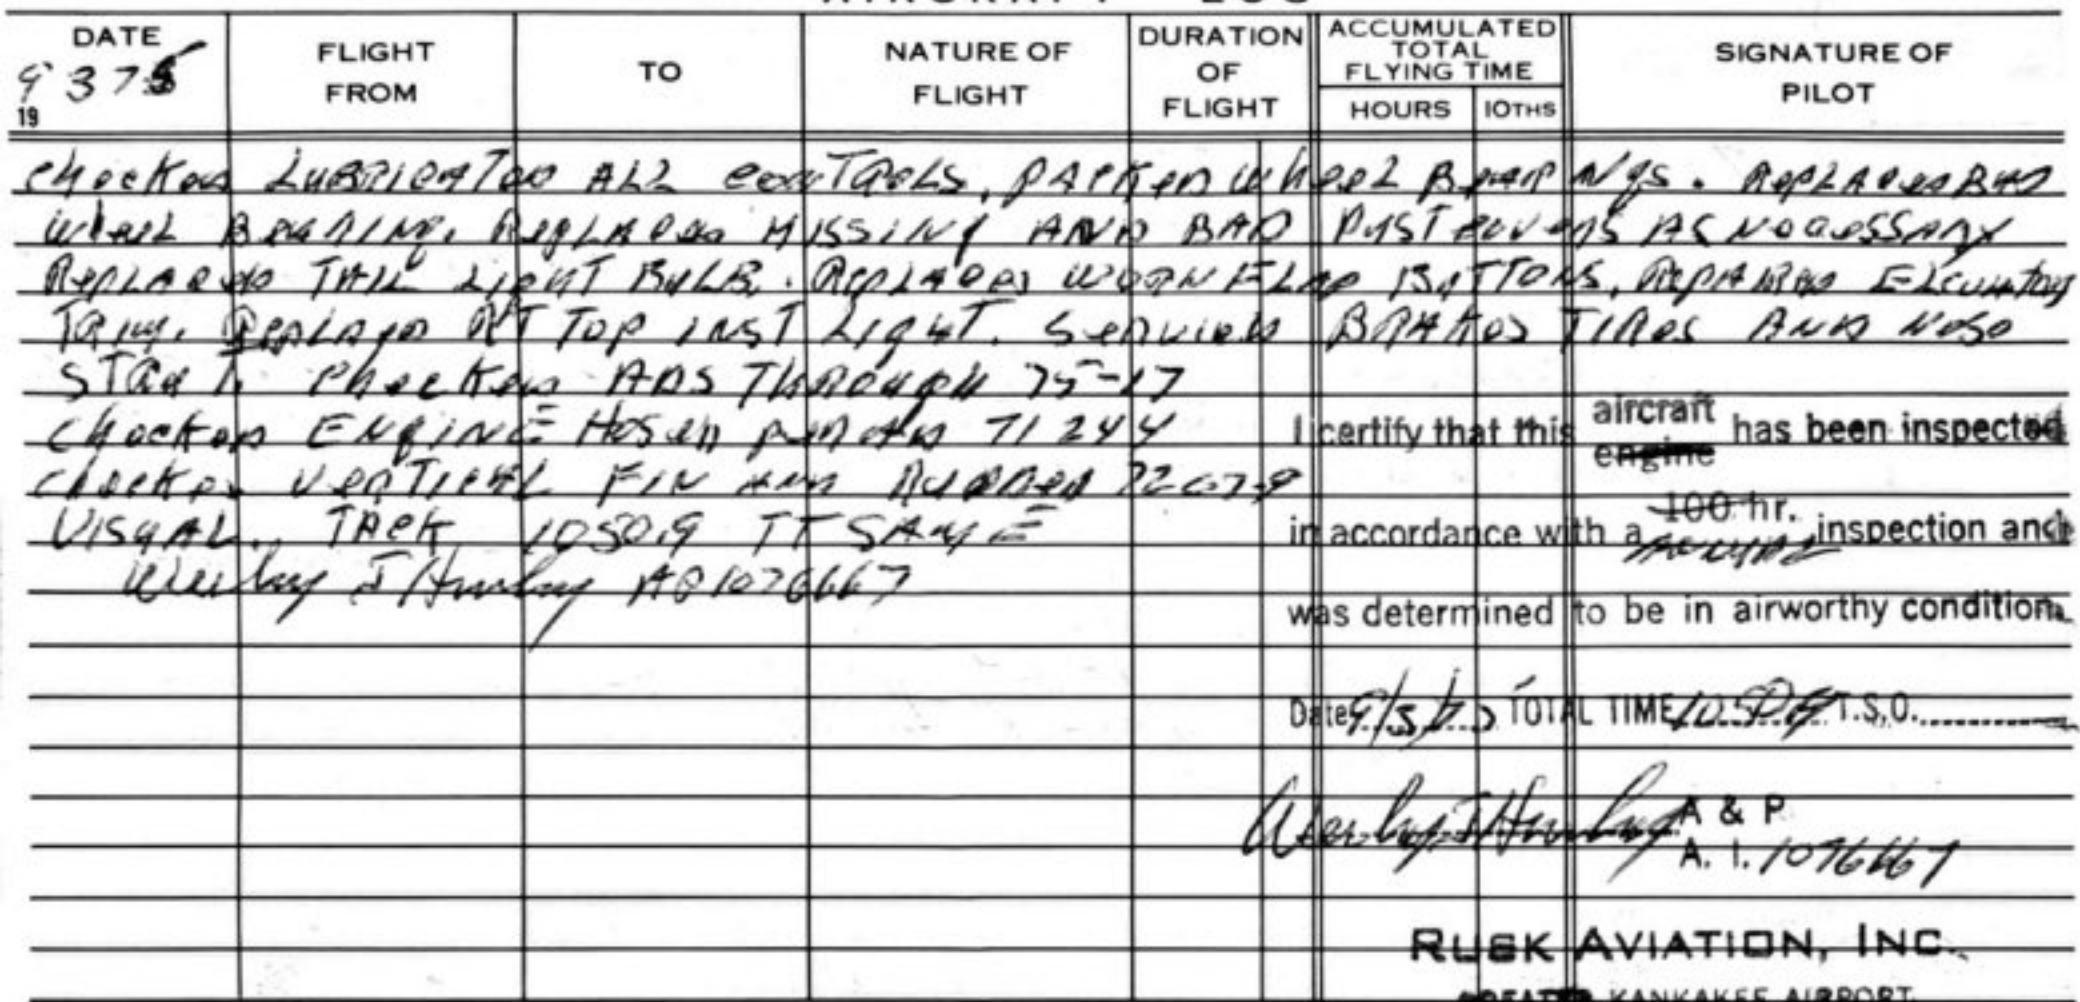 AIRCRAFT LOG
DATE
9 3 75
19
FLIGHT
FROM
TO
NATURE OF
FLIGHT
DURATION
OF
FLIGHT
ACCUMULATED
TOTAL
FLYING TIME
HOURS
10THS
SIGNATURE OF
PILOT
checked LUBRICATED ALL CONTROLS, PACKED WHEEL BEARINGS. REPLACED BAD
WHEEL BEARING. REPLACED MISSING AND BAD AS NECESSARY
REPLACED TAIL LIGHT BULB. REPLACED WORN FLAP BUTTONS, REPAIRED ELEVATOR
TRIM. REPLACED RT TOP INST LIGHT. SERVICED BRAKES TIRES AND NOSE
STRUT. CHECKED ADS THROUGH 75-17
CHECKED ENGINE 71 24 4
CHECKED VERTICAL FIN AND RUDDER 72-07-9
VISUAL. TACK 1050.9 TT SAME
1076667
I certify that this aircraft engine has been inspected
in accordance with a 100 hr. ANNUAL inspection and
was determined to be in airworthy condition.
Date 9/3/75 TOTAL TIME 1050.9 T.S.O.
A & P
A. I. 1076667
RUSK AVIATION, INC.
GREATER KANKAKEE AIRPORT